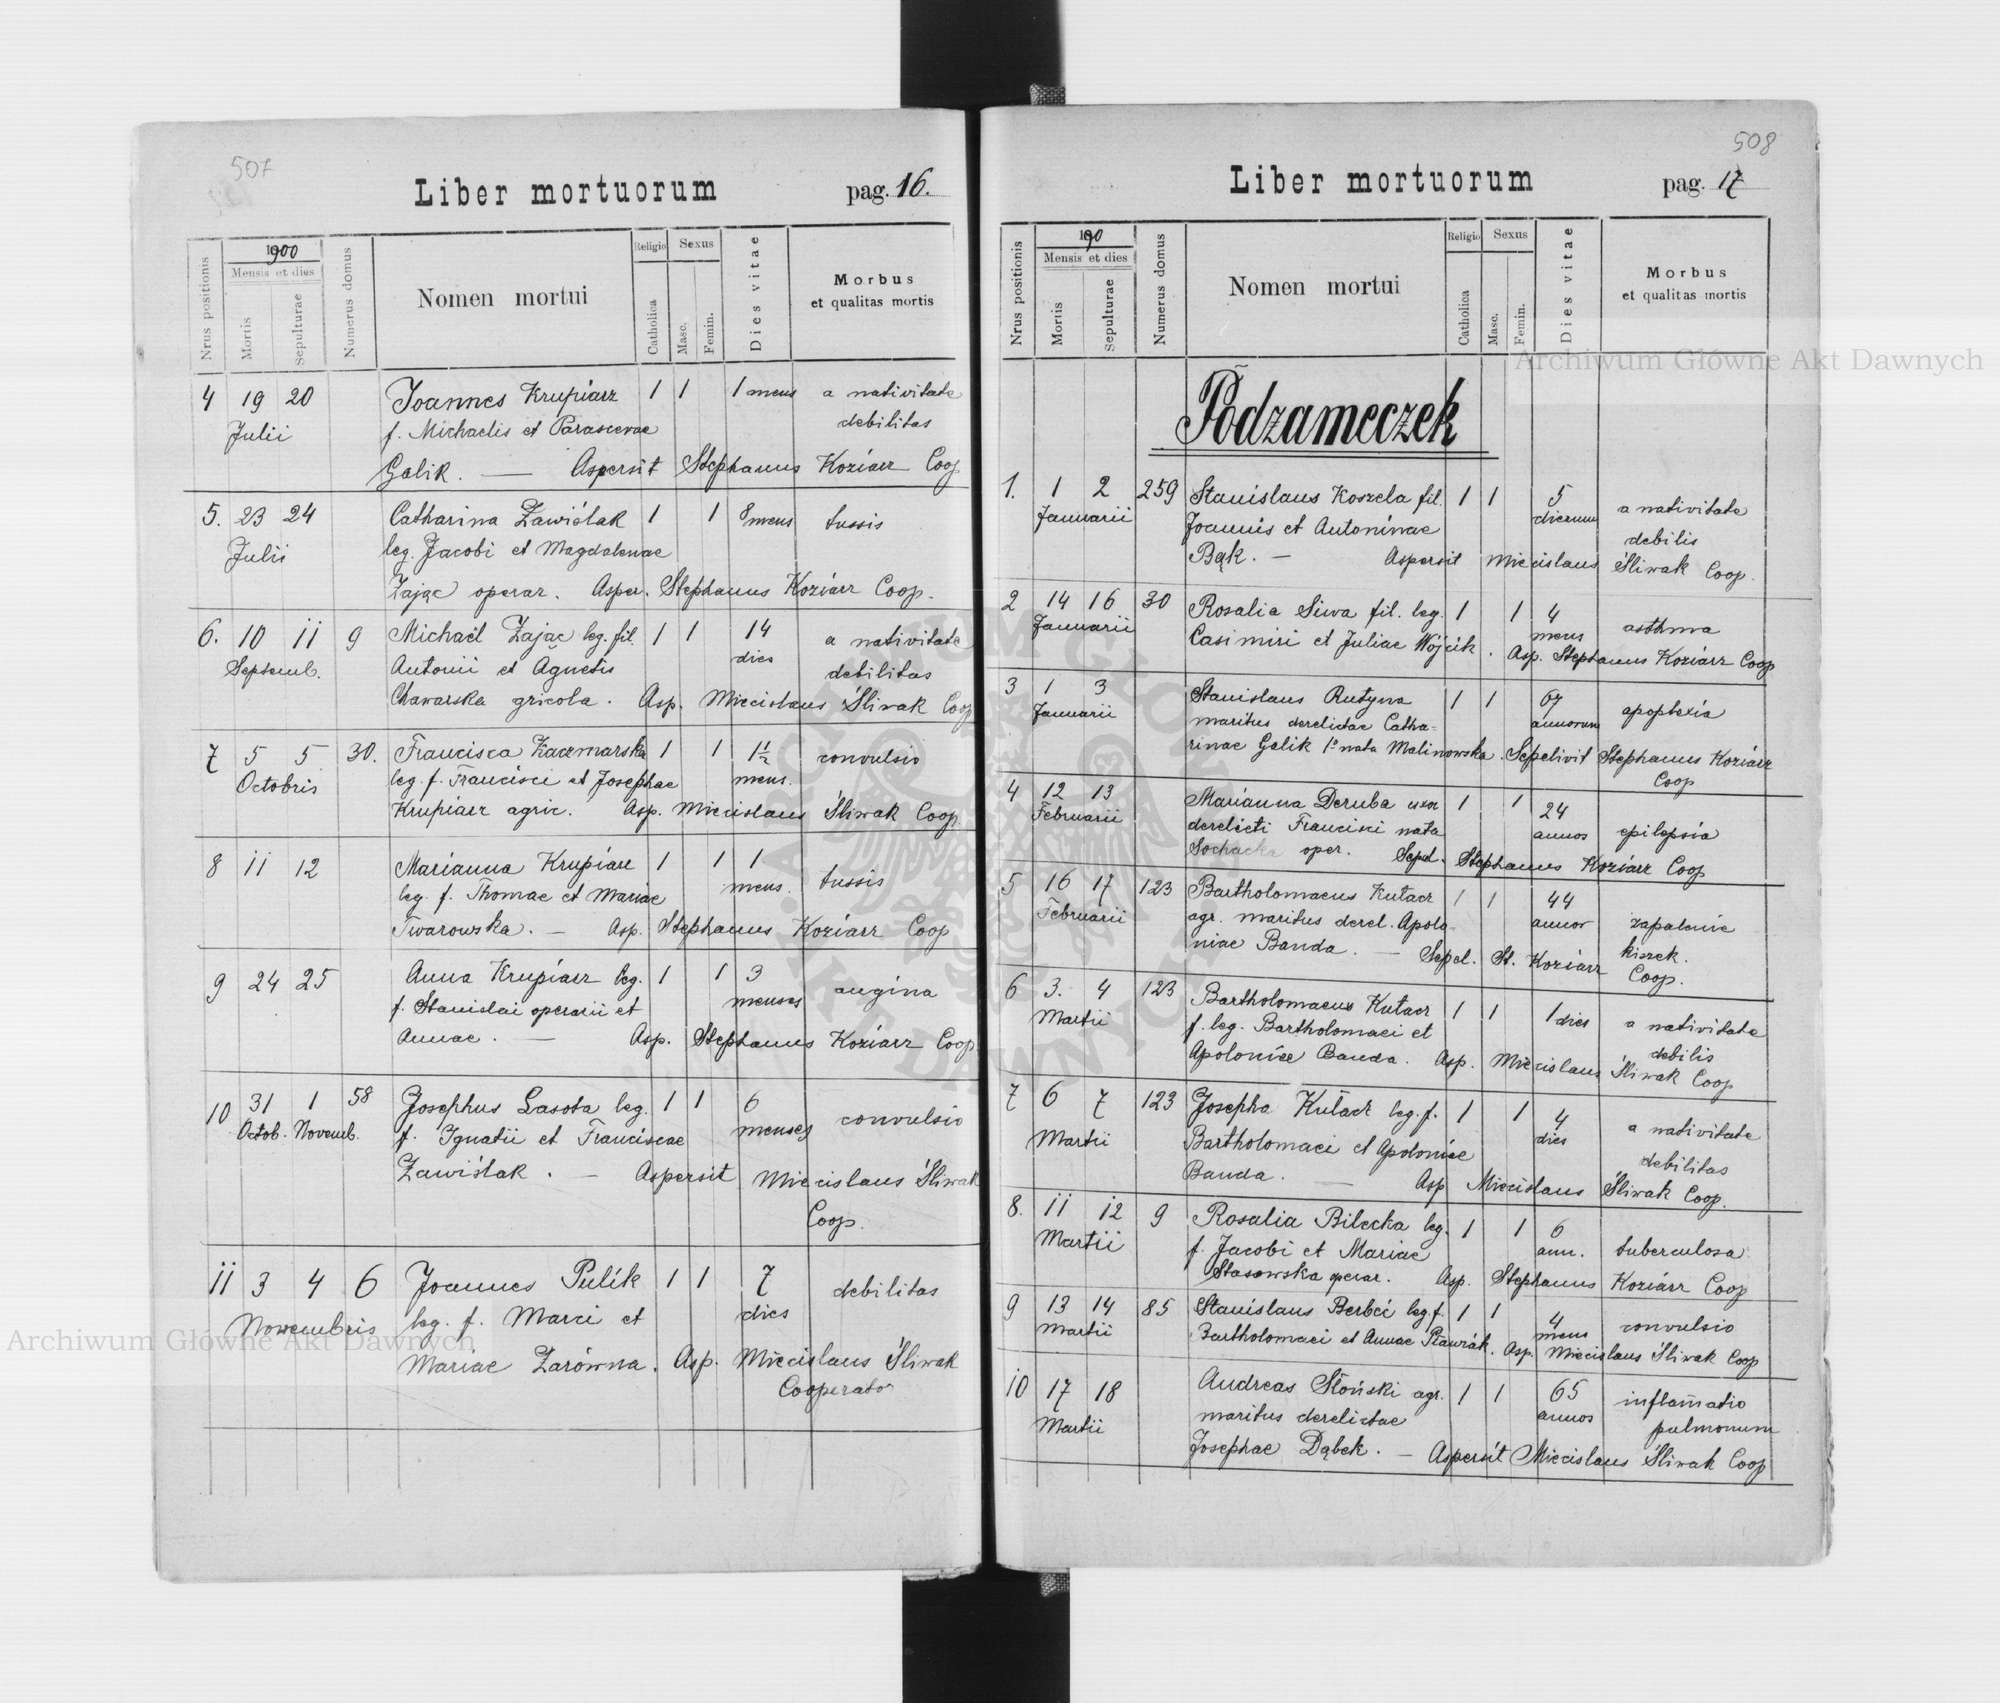 507
Liber mortuorum pag. 16.
Nrus positionis
1900
Mensis et dies
Mortis
Sepulturae
Numerus domus
Nomen mortui
Religio
Catholica
Sexus
Masc.
Femin.
Dies vitae
Morbus
et qualitas mortis
4 19 20 Joannes Krupiarz 1 1 1 mens a nativitate
Julii f. Michaelis et Parascevae debilitas
Galik. — Aspersit Stephanus Koziarz Coop
5. 23 24 Catharina Zawiślak 1 1 8 mens tussis
Julii leg. Jacobi et Magdalenae
Zając operar. Asper. Stephanus Koziarz Coop.
6. 10 11 9 Michaël Zając leg. fil. 1 1 14 a nativitate
Septemb. Antonii et Agnetis dies debilitas
gricola. Asp. Miecislaus Śliwak Coop
7 5 5 30. Francisca Kaczmarska 1 1 1½ convulsio
Octobris leg. f. Francisci et Josephae mens.
Krupiarz agric. Asp. Miecislaus Śliwak Coop
8 11 12 Marianna Krupiarz 1 1 1 tussis
leg. f. Thomae et Mariae mens.
Twarowska. — Asp. Stephanus Koziarz Coop
9 24 25 Anna Krupiarz leg. 1 1 3 angina
f. Stanislai operarii et menses
Annae. — Asp. Stephanus Koziarz Coop.
10 31 1 58 Josephus Lasota leg. 1 1 6 convulsio
Octob. Novemb. f. Ignatii et Franciscae menses
Zawiślak. — Aspersit Miecislaus Śliwak
Coop.
11 3 4 6 Joannes Pulik 1 1 7 debilitas
Novembris leg. f. Marci et dies
Mariae Zarówna. Asp. Miecislaus Śliwak
Cooperator
508
Liber mortuorum pag. 17
Nrus positionis
190
Mensis et dies
Mortis
Sepulturae
Numerus domus
Nomen mortui
Religio
Catholica
Sexus
Masc.
Femin.
Dies vitae
Morbus
et qualitas mortis
Podzameczek
1. 1 2 259 Stanislaus Koszela fil. 1 1 5 a nativitate
Januarii Joannis et Antoninae dierum debilis
Bąk. — Aspersit Miecislaus Śliwak Coop.
2 14 16 30 Rosalia Siwa fil. leg. 1 1 4 asthma
Januarii Casimiri et Juliae Wójcik. mens Asp. Stephanus Koziarz Coop
3 1 3 Stanislaus Rutyna 1 1 67 apoplexia
Januarii maritus derelictae Catha- annorum
rinae Galik 1º nata Malinowska. Sepelivit Stephanus Koziarz
Coop
4 12 13 Marianna Deruba uxor 1 1 24 epilepsia
Februarii derelicti Francisci nata annos
Sochacka oper. Sepel. Stephanus Koziarz Coop
5 16 17 123 Bartholomaeus Kutacz 1 1 44 zapalenie
Februarii agr. maritus derel. Apolo- annor kiszek.
niae Banda. — Sepel. St. Koziarz Coop.
6 3. 4 123 Bartholomaeus Kutacz 1 1 1 dies a nativitate
Martii f. leg. Bartholomaei et debilis
Apoloniae Banda. Asp. Miecislaus Śliwak Coop
7 6 7 123 Josepha Kutacz leg. f. 1 1 4 a nativitate
Martii Bartholomaei et Apoloniae dies debilitas
Banda. — Asp Miecislaus Śliwak Coop.
8. 11 12 9 Rosalia Bilecka leg. 1 1 6 tuberculosa
Martii f. Jacobi et Mariae ann.
Stasowska operar. Asp. Stephanus Koziarz Coop
9 13 14 85 Stanislaus Berbeć leg. f. 1 1 4 convulsio
Martii Bartholomaei et Annae mens Asp. Miecislaus Śliwak Coop
10 17 18 Andreas Słoński agr. 1 1 65 inflam̄atio
Martii maritus derelictae annos pulmonum
Josephae Dąbek. — Aspersit Miecislaus Śliwak Coop
Archiwum Główne Akt Dawnych
Archiwum Główne Akt Dawnych